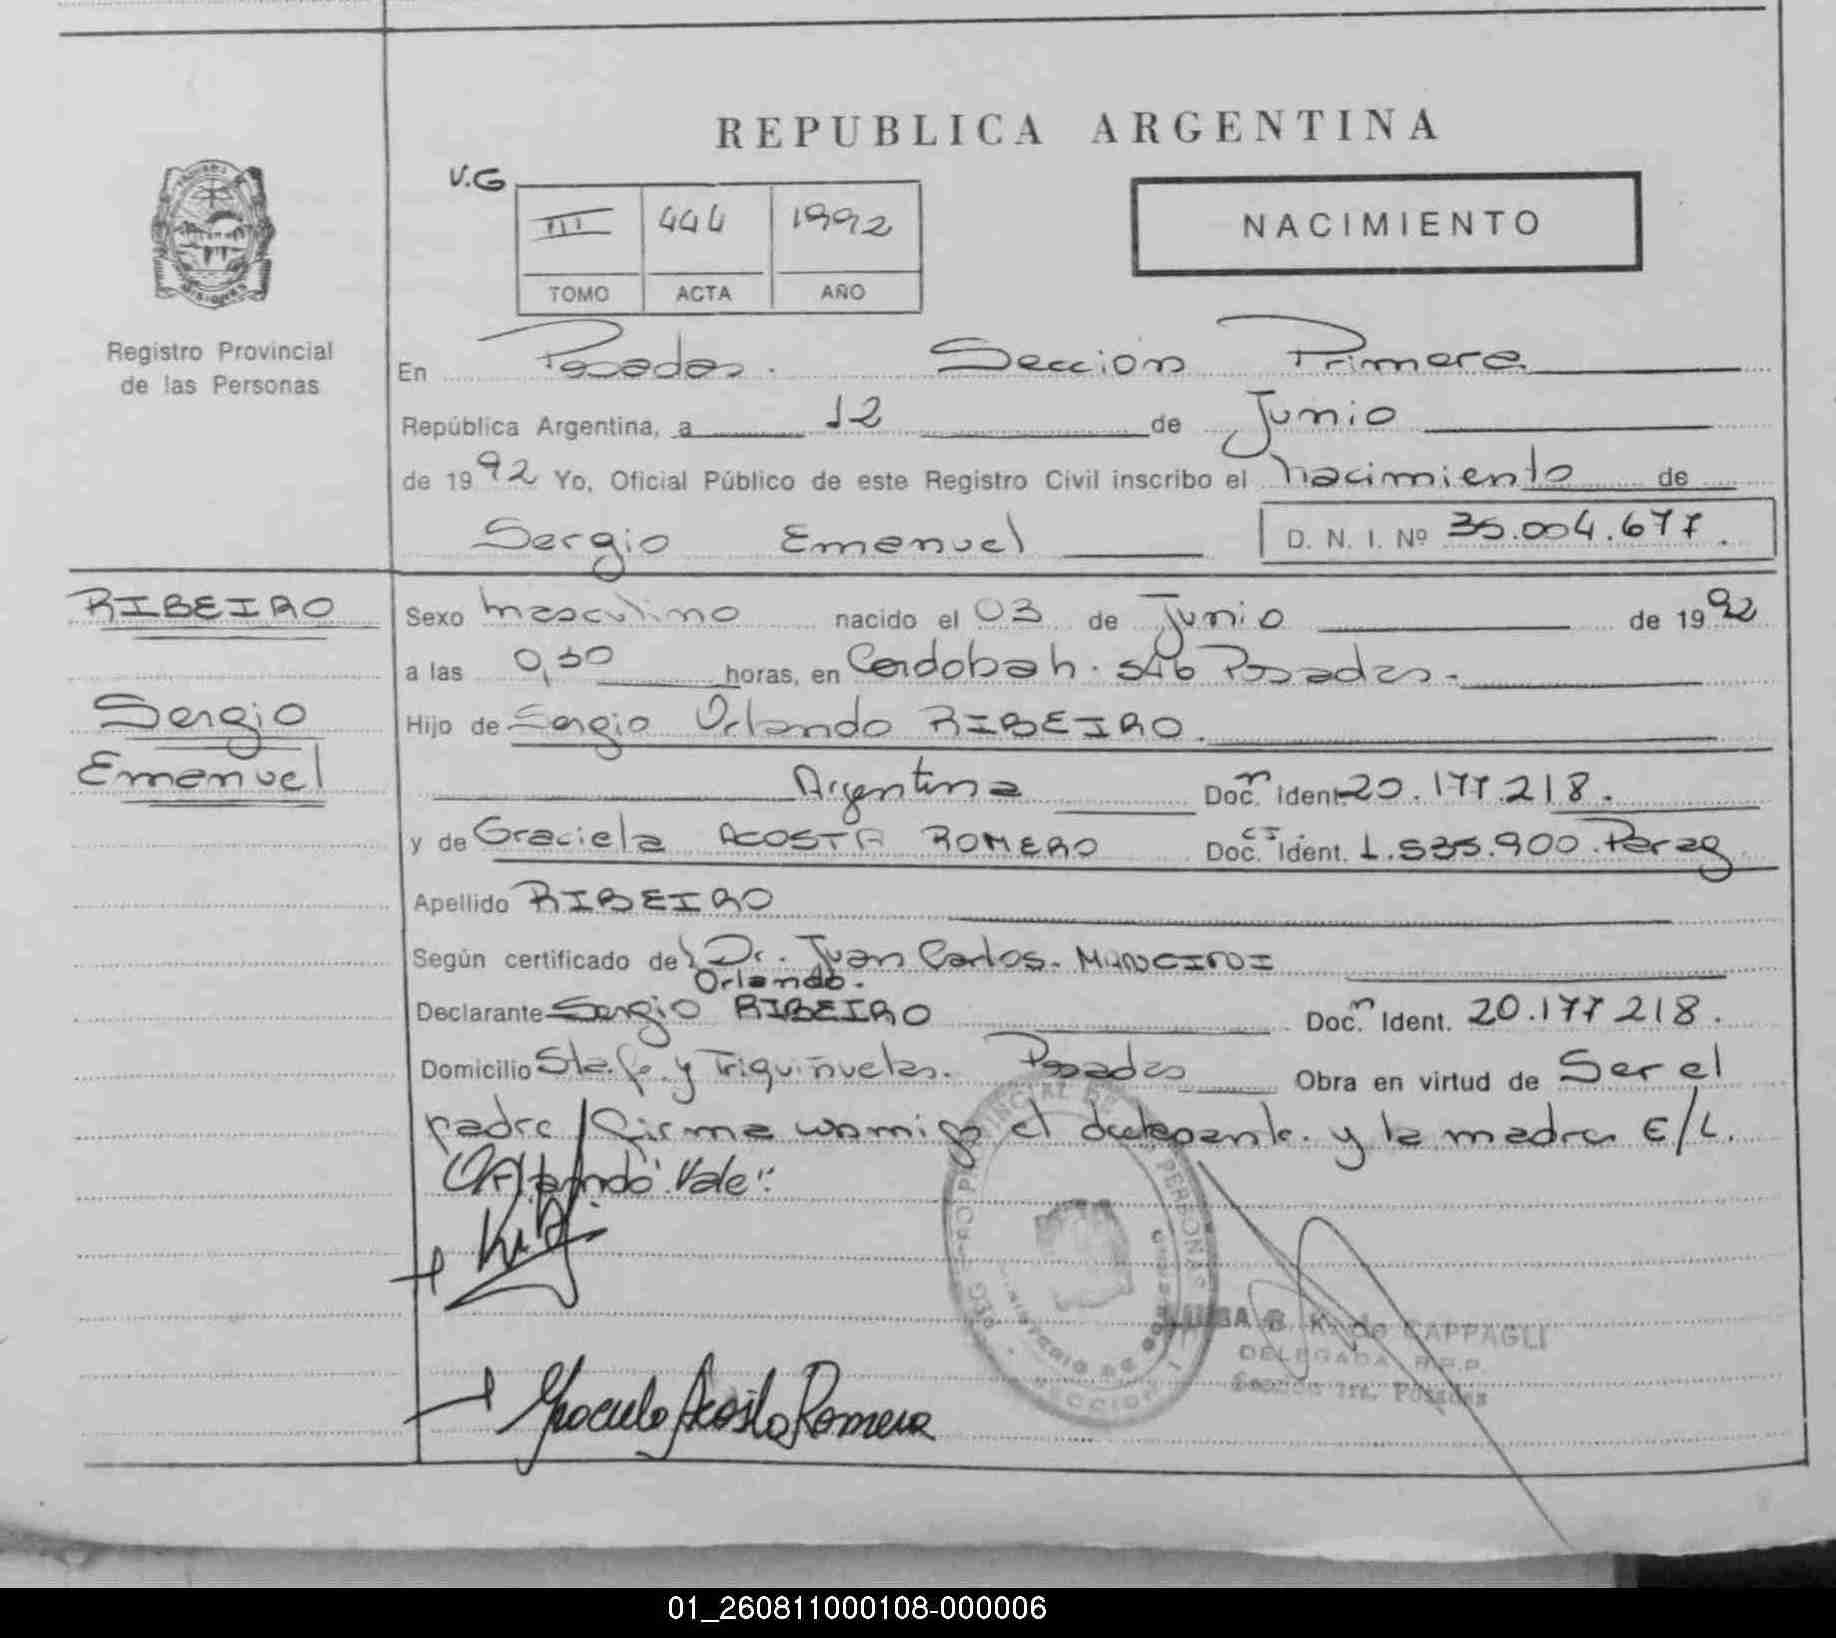 REPUBLICA ARGENTINA
V.G
III 444 1992
TOMO ACTA AÑO
NACIMIENTO
Registro Provincial
de las Personas
En Posadas. Seccion Primera
República Argentina, a 12 de Junio
de 1992 Yo, Oficial Público de este Registro Civil inscribo el nacimiento de
Sergio Emanuel D. N. I. Nº 35.004.677.
RIBEIRO
Sergio
Emanuel
Sexo masculino nacido el 03 de Junio de 1992
a las 0,30 horas, en Cordobah. 546 Posadas.
Hijo de Sergio Orlando RIBEIRO.
Argentina Doc. n Ident. 20.177.218.
y de Graciela ACOSTA ROMERO Doc. Ident. 1.535.900. Parag
Apellido RIBEIRO
Según certificado del Dr. Juan Carlos. MANCINI
Orlando.
Declarante Sergio RIBEIRO Doc. n Ident. 20.177 218.
Domicilio Sta. fe. y Triquiñuelas. Posadas Obra en virtud de Ser el
padre / firma conmigo el declarante. y la madre E/L.
"Orlando" Vale":
LUISA B. K. de CAPPAGLI
DELEGADA R.P.P.
Sección 1ra. Posadas
Graciela Acosta Romero
01_260811000108-000006